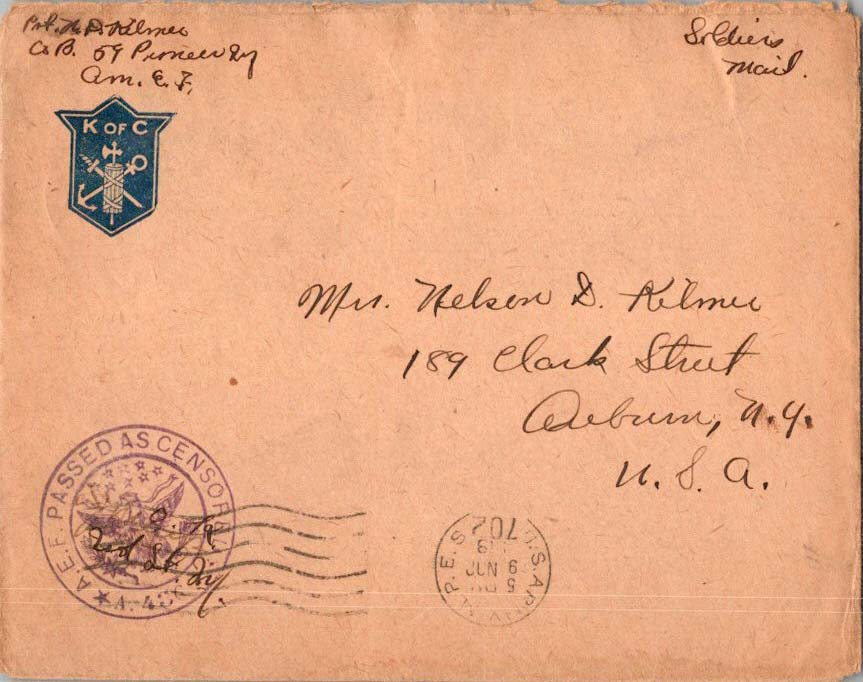 Pvt. N. D. Kilmer
Co B. 59 Pioneer Inf
Am. E. F.
Soldiers
Mail.
K OF C
Mrs. Nelson D. Kilmer
189 Clark Street
Auburn, N.Y.
U. S. A.
A.E.F. PASSED AS CENSORED
2nd Lt. Inf.
U.S. ARMY M.P.E.S.
702
JUN 9
5